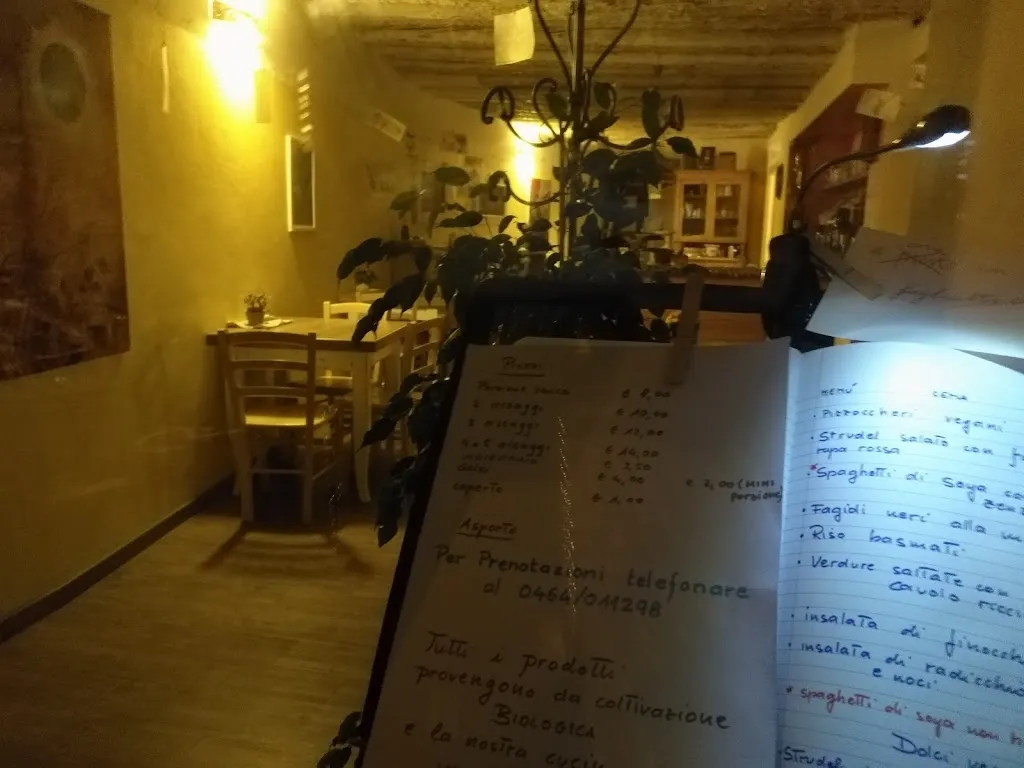 Prezzi
Porzione unica € 8,00
2 assaggi € 10,00
3 assaggi € 12,00
4 o 5 assaggi € 14,00
€ 2,50
Dolci € 4,00 € 2,00 (MINI
porzione)
coperto € 1,00
Asporto
Per Prenotazioni telefonare
al 0464/011298
Tutti i prodotti
provengono da coltivazione
BIOLOGICA
e la nostra
MENÚ CENA
• Pizzoccheri vegani
• Strudel salato con
rapa rossa
*Spaghetti di soya
• Fagioli neri alla
• Riso basmati
• Verdure saltate con
cavolo
• insalata di
• insalata di
e noci
* spaghetti di soya non
Dolci
•Strudel